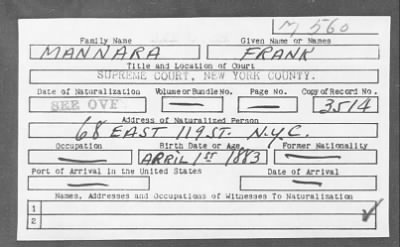 M 560
Family Name Given Name or Names
MANNARA FRANK
Title and Location of Court
SUPREME COURT, NEW YORK COUNTY.
Date of Naturalization Volume or Bundle No. Page No. Copy of Record No.
SEE OVE — — 3514
Address of Naturalized Person
68 EAST 119 ST. N.Y.C.
Occupation Birth Date or Age Former Nationality
— APRIL 1ST 1883 —
Port of Arrival in the United States Date of Arrival
— —
Names, Addresses and Occupations of Witnesses To Naturalization
1
2 ✓